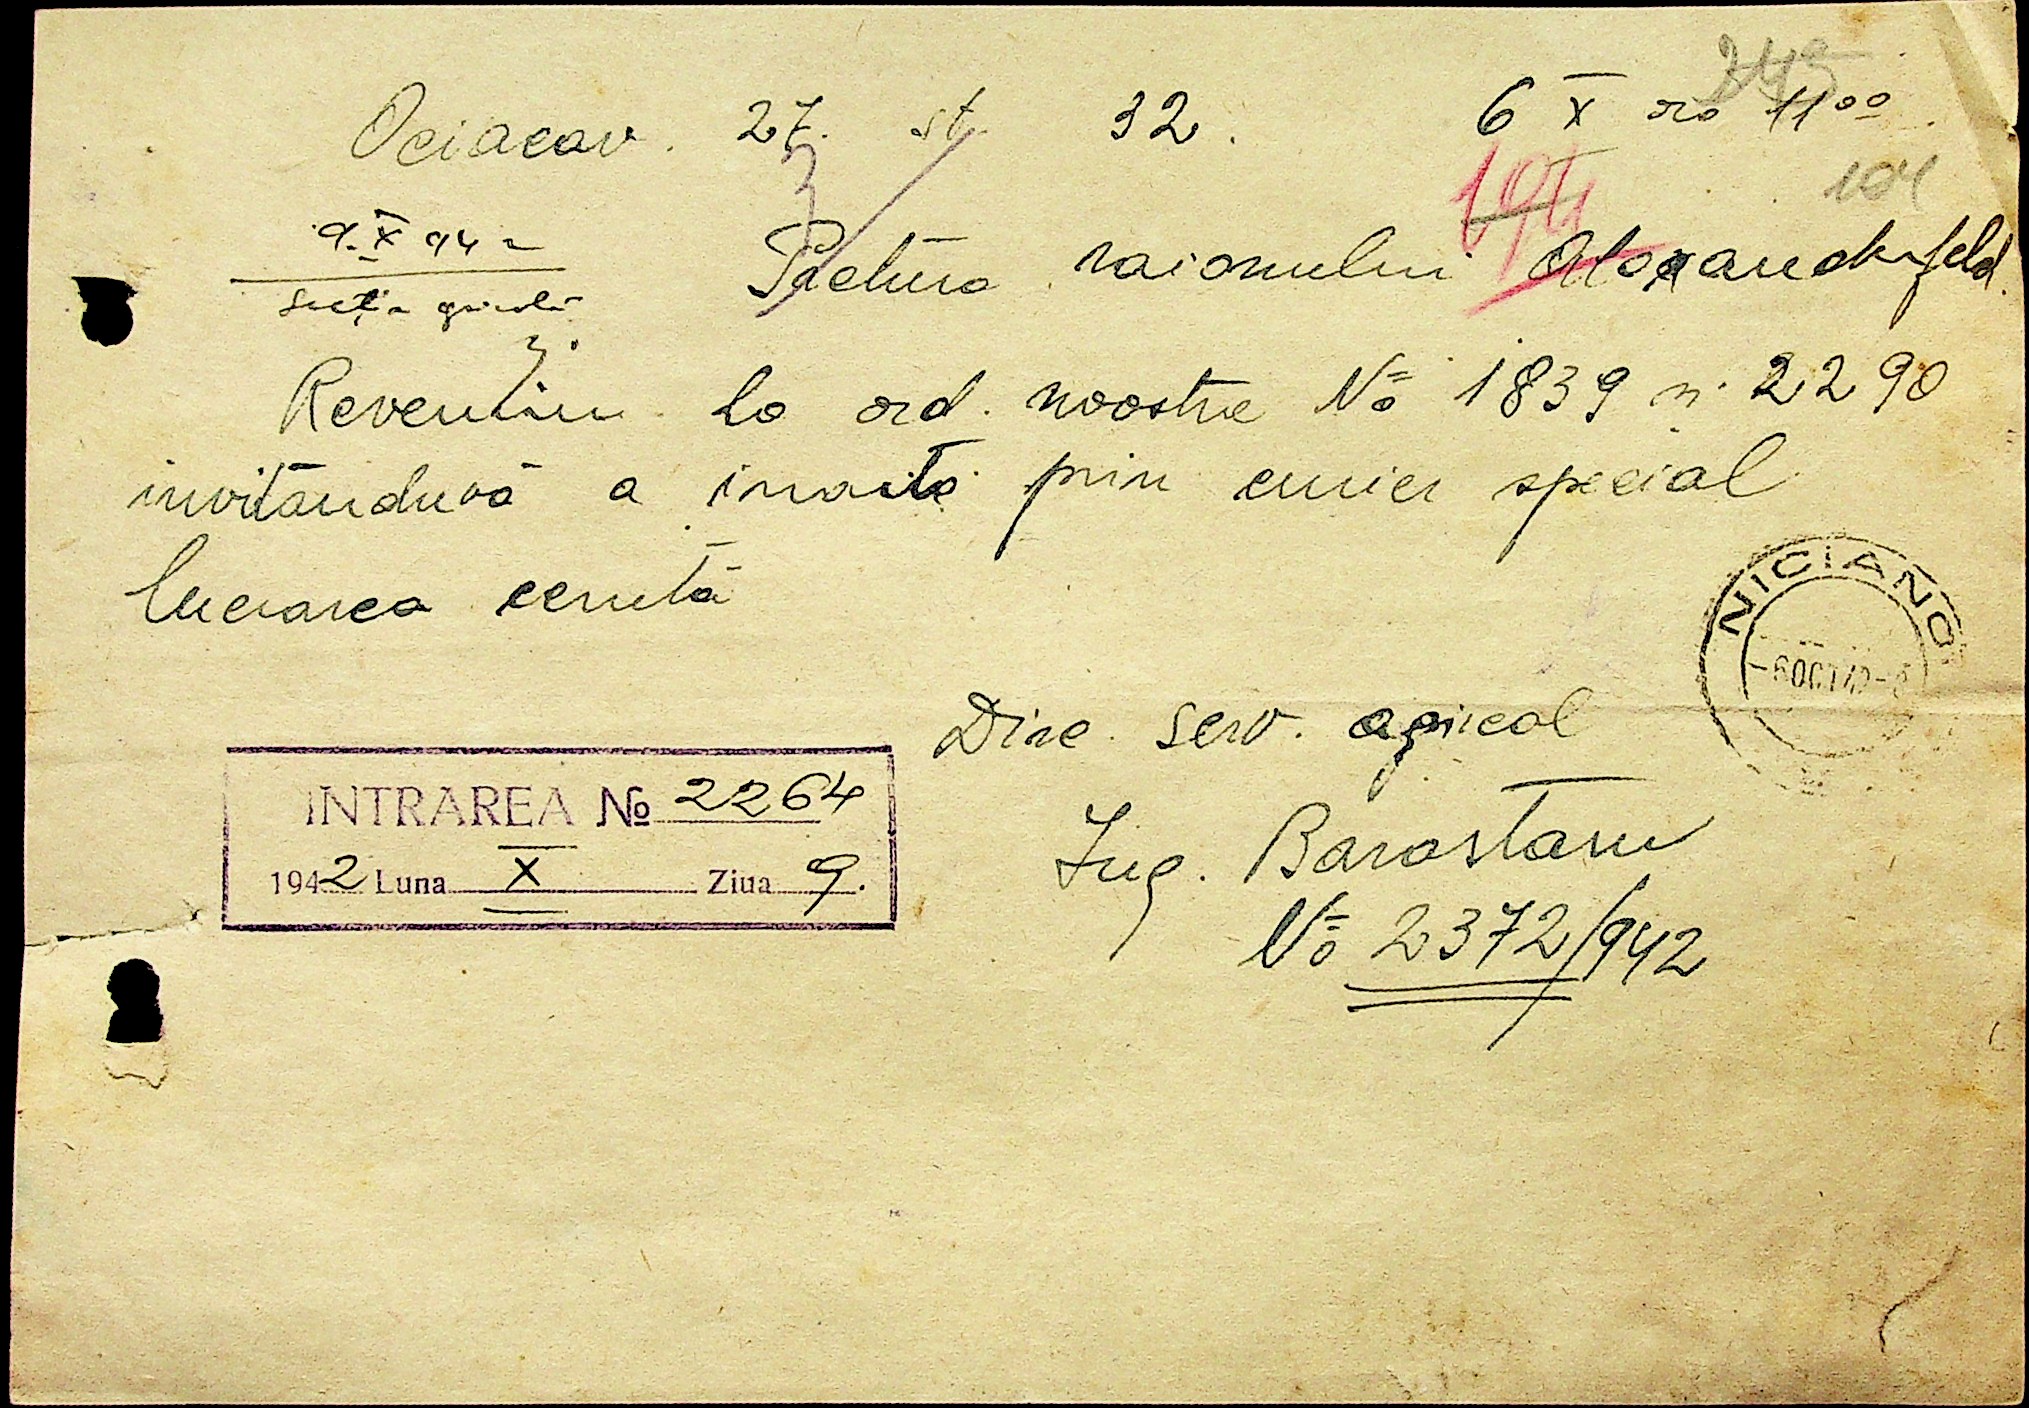 349
Ociacav. 27. st. 32. 6 X ora 11 00
194 104
9. X 942
Secția agricolă
Pretura raionului Alexanderfeld.
Revenim la ord. noostre No 1839 și 2290
invitânduvă a inainta prin curier special
lucrarea cerută
NICIANO
-6OCT42-8
Dire. serv. agricol
Ing. Barastaru
No 2372/942
INTRAREA No 2264
1942 Luna X Ziua 9.